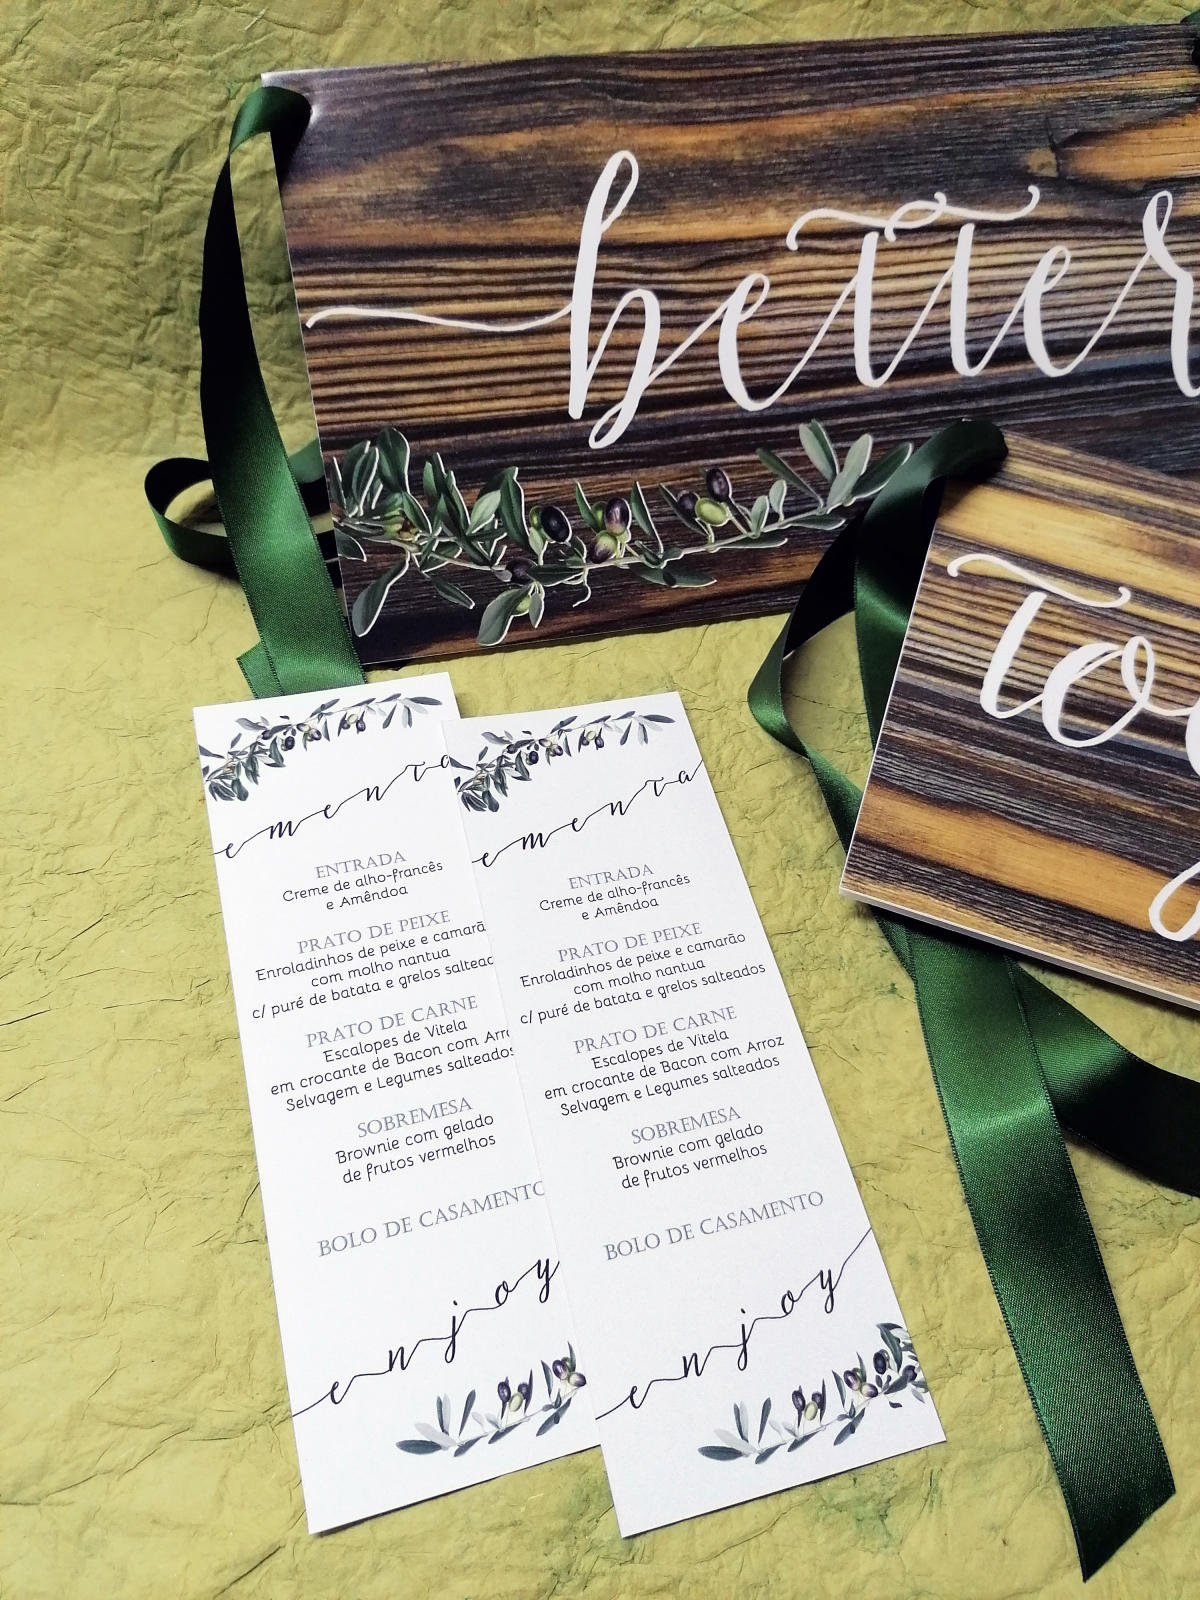 better
tog
ementa
ENTRADA
Creme de alho-francês
e Amêndoa
PRATO DE PEIXE
Enroladinhos de peixe e camarã
com molho nantua
c/ puré de batata e grelos saltead
PRATO DE CARNE
Escalopes de Vitela
em crocante de Bacon com Arro
Selvagem e Legumes salteados
SOBREMESA
Brownie com gelado
de frutos vermelhos
BOLO DE CASAMENTO
enjoy
ementa
ENTRADA
Creme de alho-francês
e Amêndoa
PRATO DE PEIXE
Enroladinhos de peixe e camarão
com molho nantua
c/ puré de batata e grelos salteados
PRATO DE CARNE
Escalopes de Vitela
em crocante de Bacon com Arroz
Selvagem e Legumes salteados
SOBREMESA
Brownie com gelado
de frutos vermelhos
BOLO DE CASAMENTO
enjoy